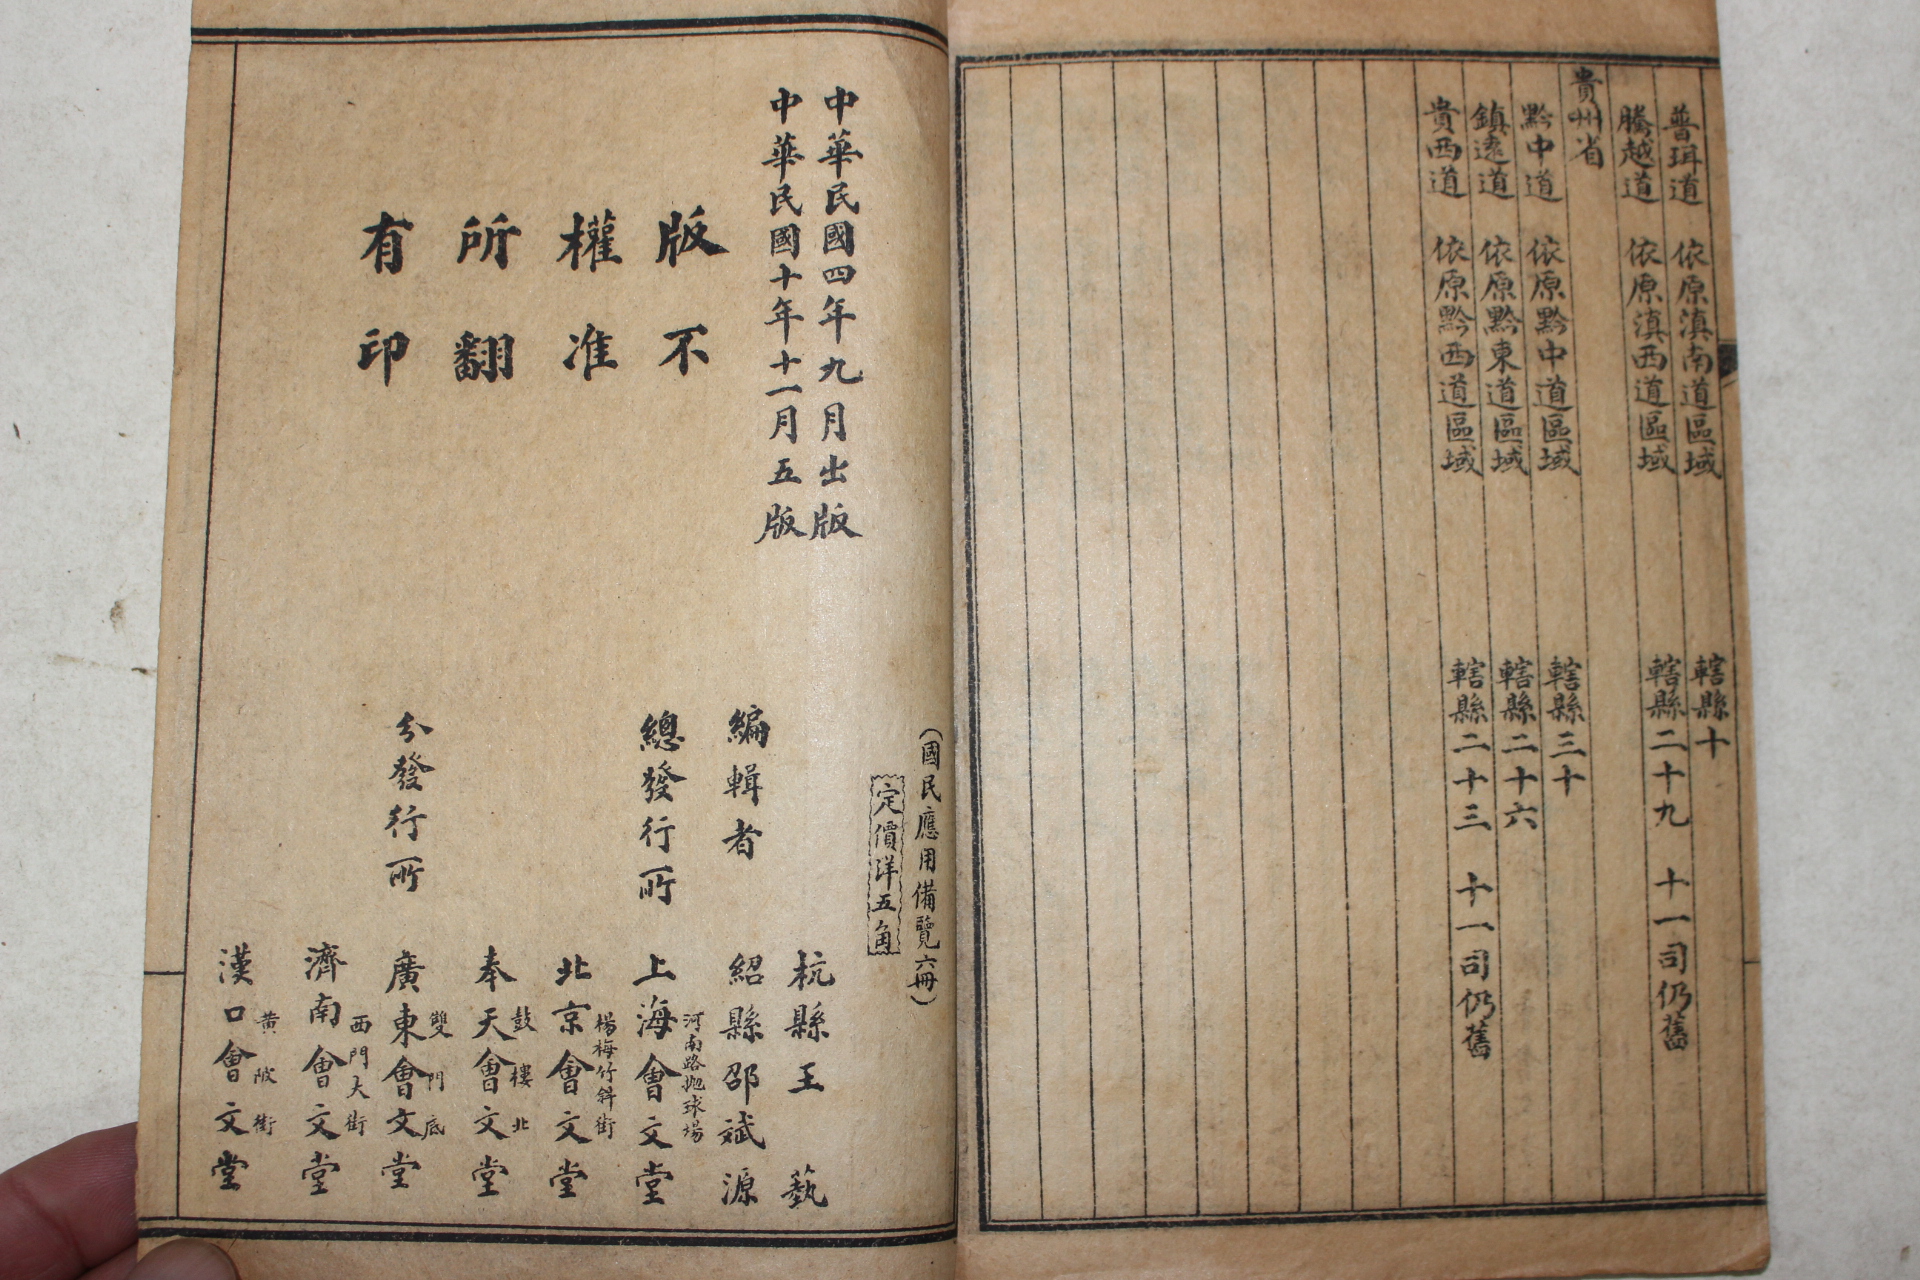 普珥道 依原滇南道區域 轄縣十
騰越道 依原滇西道區域 轄縣二十九 十一司仍舊
貴州省
黔中道 依原黔中道區域 轄縣三十
鎮遠道 依原黔東道區域 轄縣二十六
貴西道 依原黔西道區域 轄縣二十三 十一司仍舊
(國民應用備覽六冊)
定價洋五角
中華民國四年九月出版
中華民國十年十一月五版
版權所有
不准翻印
編輯者
杭縣王藝
紹縣邵斌源
總發行所
河南路拋球場
上海會文堂
分發行所
楊梅竹斜街
北京會文堂
鼓樓北
奉天會文堂
雙門底
廣東會文堂
西門大街
濟南會文堂
黃陂街
漢口會文堂